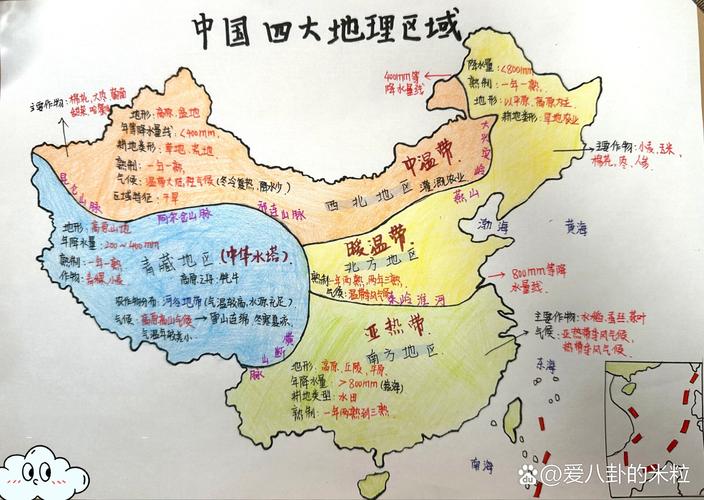 中国四大地理区域
400mm等
降水量线
降水量:<800mm
熟制:一年一熟.
地形:以平原,高原为主
耕地类型:旱地农业
主要作物:小麦、玉米、
棉花、
主要作物:棉花,
地形:高原、盆地
年等降水量线:<400mm.
耕地类形:草地、荒地.
熟制:一年一熟.
气候:温带大陆性气候(冬冷夏热,降水少)
区域特征:干旱
中温带.
西北地区
灌溉农业
大兴安岭
燕山
昆仑山脉
阿尔金山脉
祁连山脉
渤海
黄海
地形:高原山地
年降水量:200~400mm
熟制:一年一熟
作物:青稞,小麦
青藏地区(中华水塔)
高原之舟:牦牛
农作物分布:河谷地带(气温较高,水源充足)
气候:高原高山气候→雪山连绵,冬寒夏凉,
气温年较差小.
横断山脉
暖温带.
北方地区
熟制:一年两熟,两年三熟.
气候:温带季风气候
秦岭淮河
800mm等降
水量线.
亚热带
南方地区
地形:高原、丘陵、平原.
年降水量:>800mm
耕地类型:水田
熟制:一年两熟到三熟.
主要作物:水稻、茶叶
气候:亚热带季风气候
热带季风气候.
东海
南海
@爱八卦的米粒